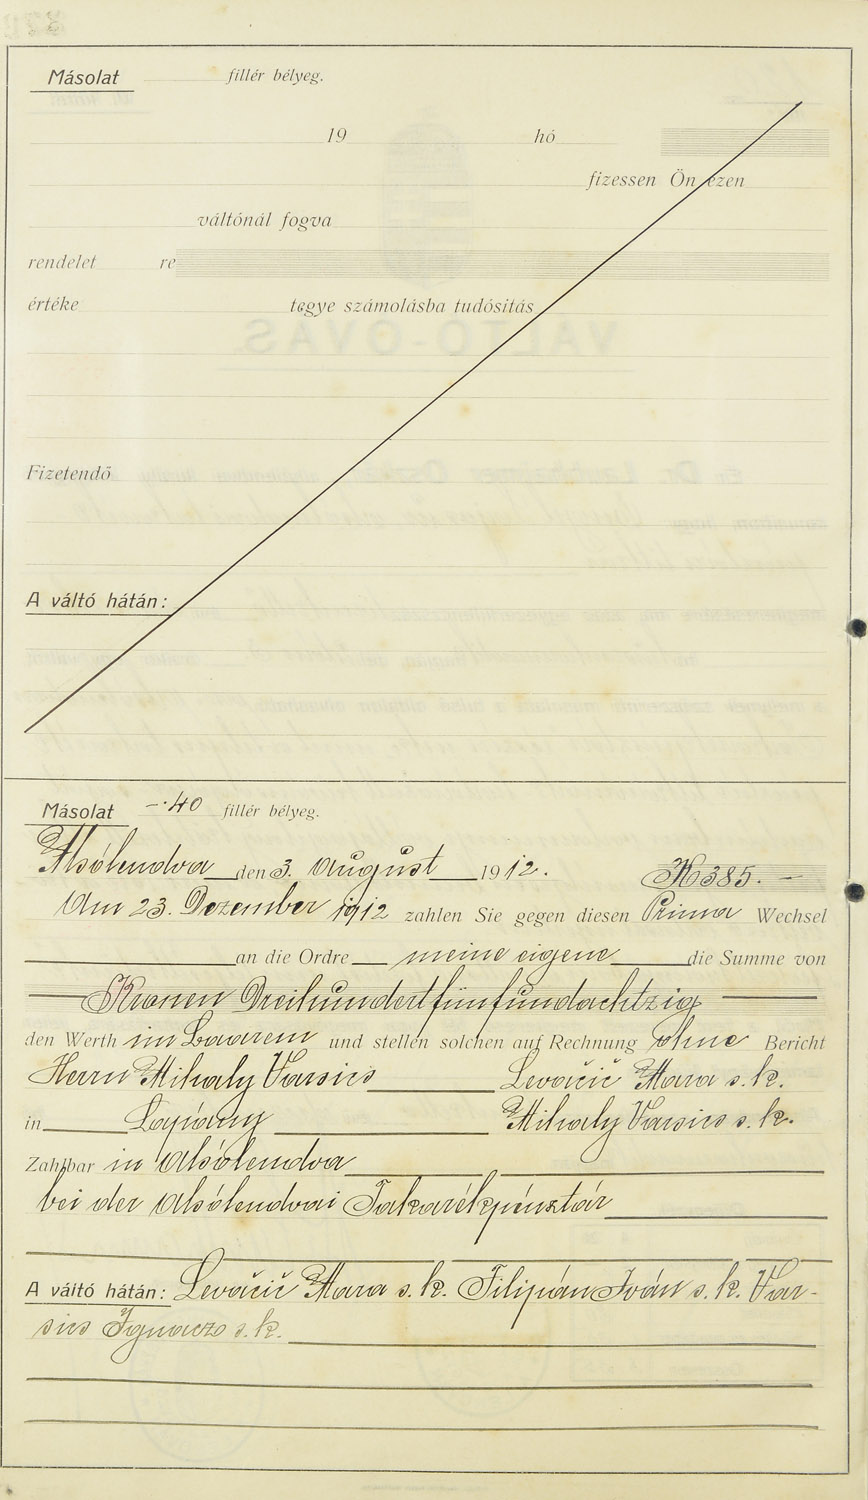 Másolat fillér bélyeg.
19 hó
fizessen Ön ezen
váltónál fogva
rendelet re
értéke tegye számolásba tudósitás
VÁLTÓ-ÓVÁS.
Fizetendő
A váltó hátán:
Másolat -·40 fillér bélyeg.
Alsólendva den 3. August 1912. K 385.-
Am 23. Dezember 1912 zahlen Sie gegen diesen Prima Wechsel
an die Ordre meine eigene die Summe von
Kronen Dreihundertfünfundachtzig
den Werth im Baarem und stellen solchen auf Rechnung ohne Bericht
Herrn Mihaly Varsics Levačič Mara s. k.
in Mihaly Varsics s. k.
Zahlbar in Alsólendva
bei der Alsólendvai Takarékpénztár
A váltó hátán: Levačič Mara s. k. Filipán Iván s. k. Var-
sics Ignacz s. k.